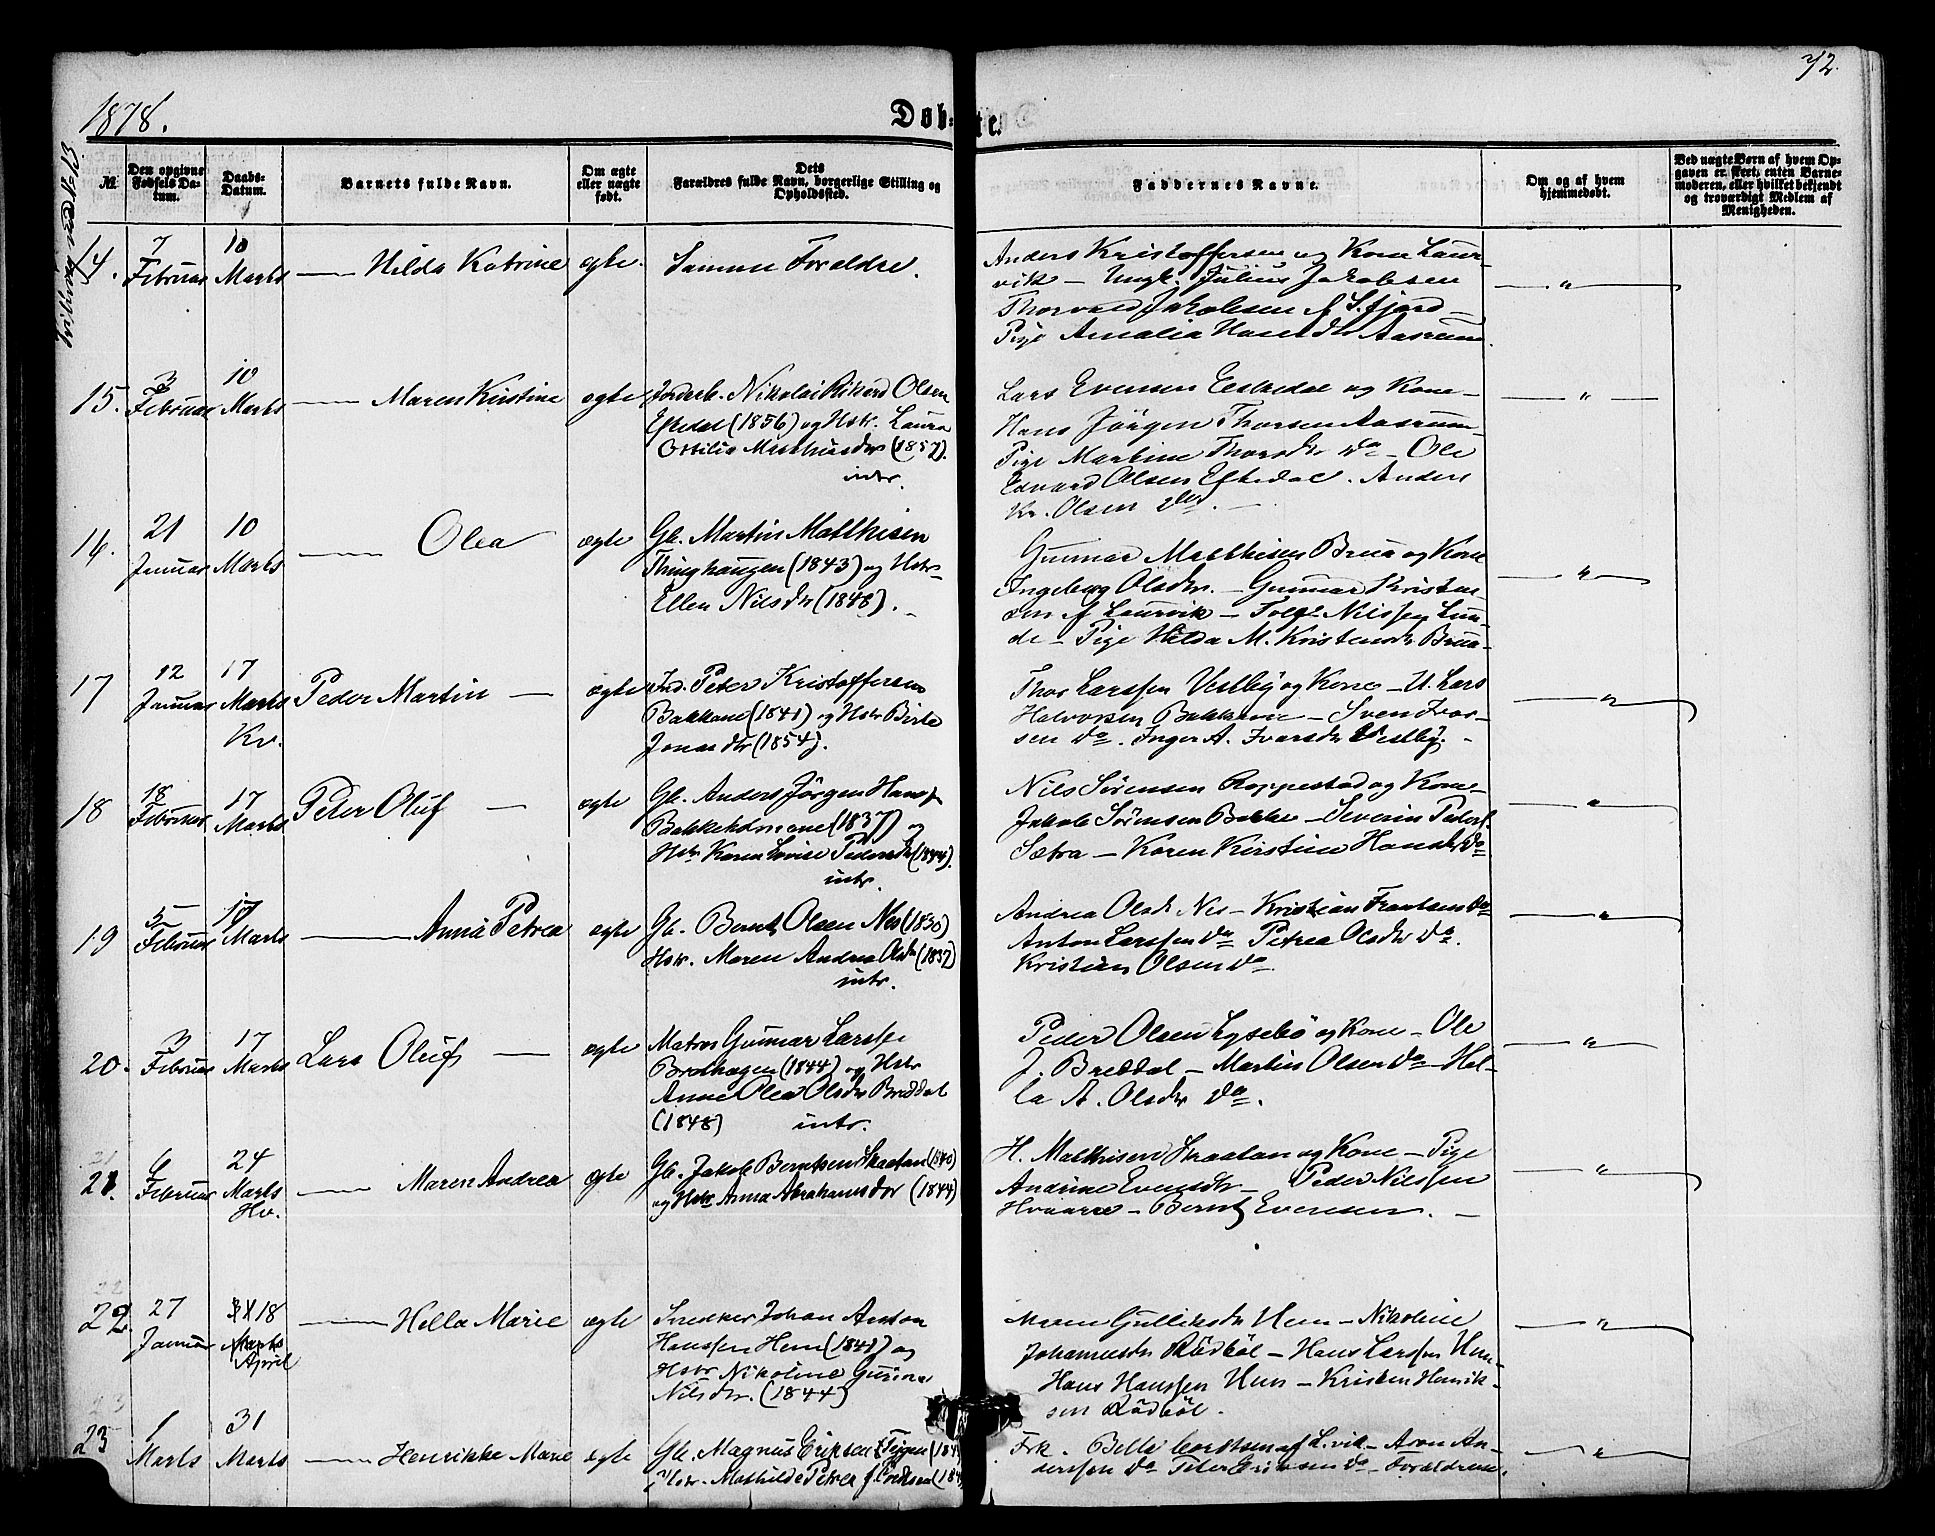 72.
1878.
Døb- te.
№
Den opgivne Fødsels Datum.
Daabs-Datum.
Barnets fulde Navn.
Om ægte eller uægte født.
Dets Forældres fulde Navn, borgerlige Stilling og Opholdssted.
Faddernes Navne.
Om og af hvem hjemmedøbt.
Ved uægte Børn af hvem Opgaven er skeet, enten Barnemoderen, eller hvilket bekjendt og troværdigt Medlem af Menigheden.
14. 7 Februar 10 Marts — Hilda Katrine ægte. Samme Forældre.
Anders Kristoffersen og Kone Laur-
vik — Ungk. Julius Jakobsen
Thorvald Jakobsen af S.fjord —
Pige Amalia Hansdtr Aasrum.
15. 3 Februar 10 Marts — Maren Kirstine ægte
Jorderb. Nikolai Rikard Olsen
Eftedal (1856) og Hstr. Laura
Ottilia Matthisdtr (1857).
intr.
Lars Evensen Eftedal og Kone —
Hans Jørgen Thorsen Aasrum —
Pige Martine Thorsdtr do — Ole
Edvard Olsen Eftedal. Anders
Kr. Olsen do. —
16. 21 Januar 10 Marts — Olea ægte
Gb. Martin Matthisen
Thinghaugen (1843) og Hstr.
Ellen Nilsdtr (1848). —
Gunnar Matthisen Brua og Kone
Ingeborg Olsdtr. — Gunnar Kristen-
sen af Laurvik — Tolf Nilssen Lun-
de — Pige Hilda M. Kristensdtr Brua —
17 12 Januar 17 Marts Kv. Peder Martin — ægte
Ind. Peter Kristoffersen
Bakkane (1841) og Hstr Birte
Jonasdtr (1854).
Thor Larssen Vestby og Kone — U. Lars
Halvorsen Bakkane — Sven Ivar-
sen do. Inger A. Ivarsdtr Vestby. —
18 18 Februar 17 Marts Peter Oluf — ægte
Gb. Anders Jørgen Hanss.
Bakkeholmane (1837) og
Hstr Karen Lovise Pedersdtr (1844).
intr.
Nils Sørensen Roppestad og Kone —
Jakob Sørensen Bakke — Severin Peders.
Sætra — Karen Kirstine Hansdtr do
19 5 Februar 17 Marts — Anna Petrea ægte
Gb. Bernt Olsen Nes (1830)
Hstr. Maren Andrea Olsdtr (1837)
intr.
Andrea Olsdtr Nes — Kristian Frantsen do
Anton Larssen do Petrea Olsdtr do.
Kristian Olsen do.
20. 3 Februar 17 Marts Lars Oluf — ægte
Matros Gunnar Larssen
(1844) og Hstr
Anne Olea Olsdtr Breddal
(1848) intr.
Peder Olsen Lysebö og Kone — Ole
J. Breddal — Martin Olsen do — Hel-
la A. Olsdtr do.
21. 6 Februar 24 Marts Hv. — Maren Andrea ægte
Gb. Jakob Berntsen Skaatan (1840)
og Hstr Anna Abrahamsdtr (1844)
H. Mathisen Skaatan og Kone — Pige
Andrine Evensdtr — Peder Nilssen
Hvaarre — Bernt Evensen. —
22. 27 Januar 18 Marts April — Hella Marie ægte
Snedker Johan Anton
Hanssen Hem (1841) og
Hstr Nikoline Gurine
Nilsdtr. (1844)
Maren Gulliksdtr Hem — Nikoline
Johannesdtr Rödböl — Hans Larssen Hem —
Hans Hanssen Hem — Kristen Henrik-
sen Rödböl.
23 1 Marts 31 Marts — Henrikke Marie ægte
Gb. Magnus Eriksen
Hstr. Mathilde Petrea
Frk. Belle af L.vik — Aron An-
derssen do Peter Eriksen do — Forældrene.